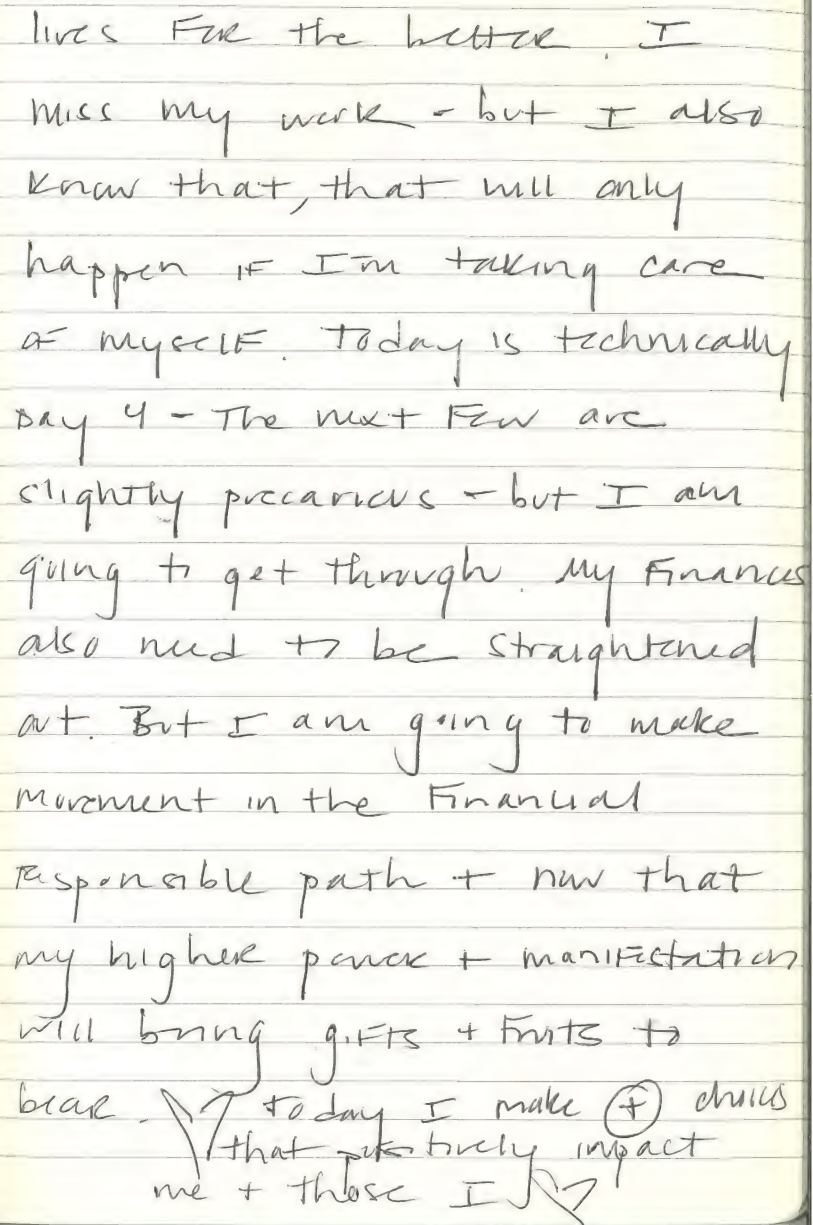 lives For the better. I
miss my work - but I also
know that, that will only
happen if I'm taking care
of myself. Today is technically
Day 4 - The next Few are
slightly precarious - but I am
going to get through. My Finances
also need to be straightened
out. But I am going to make
movement in the Financial
responsible path + now that
my higher power + manifestation
will bring gifts + Fruits to
bear. ♡ today I make ⊕ choices
that positively impact
me + those I ♡